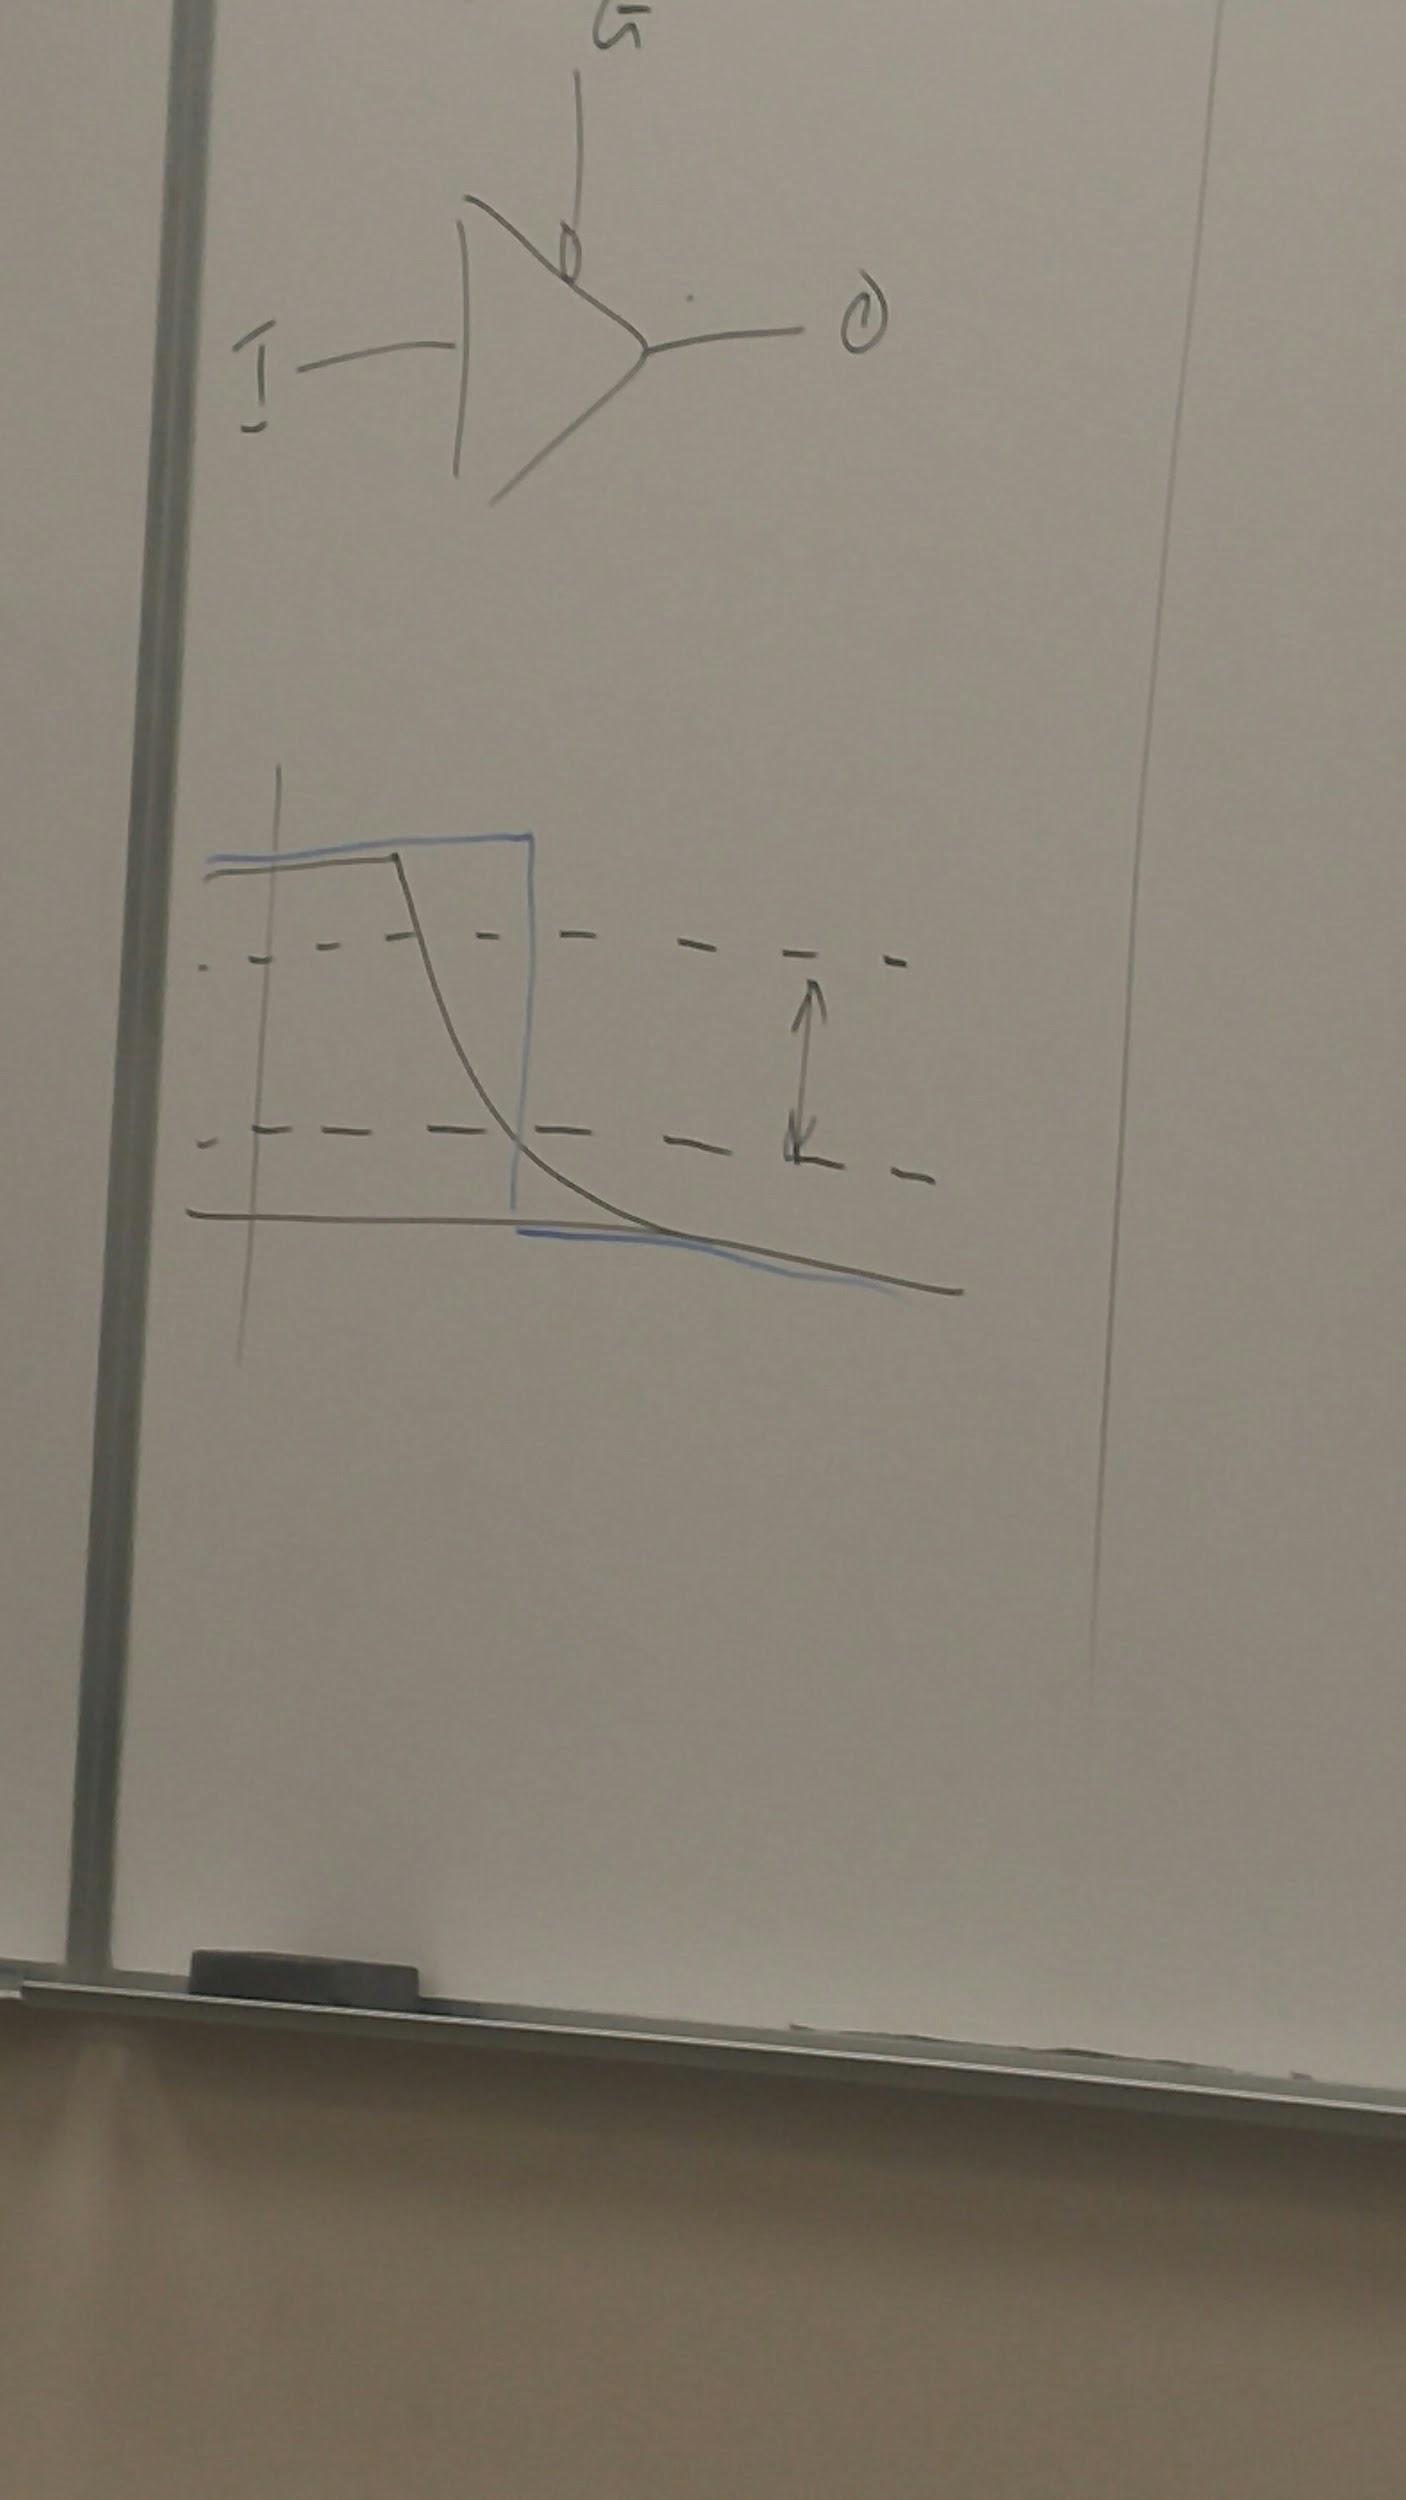 G
I O